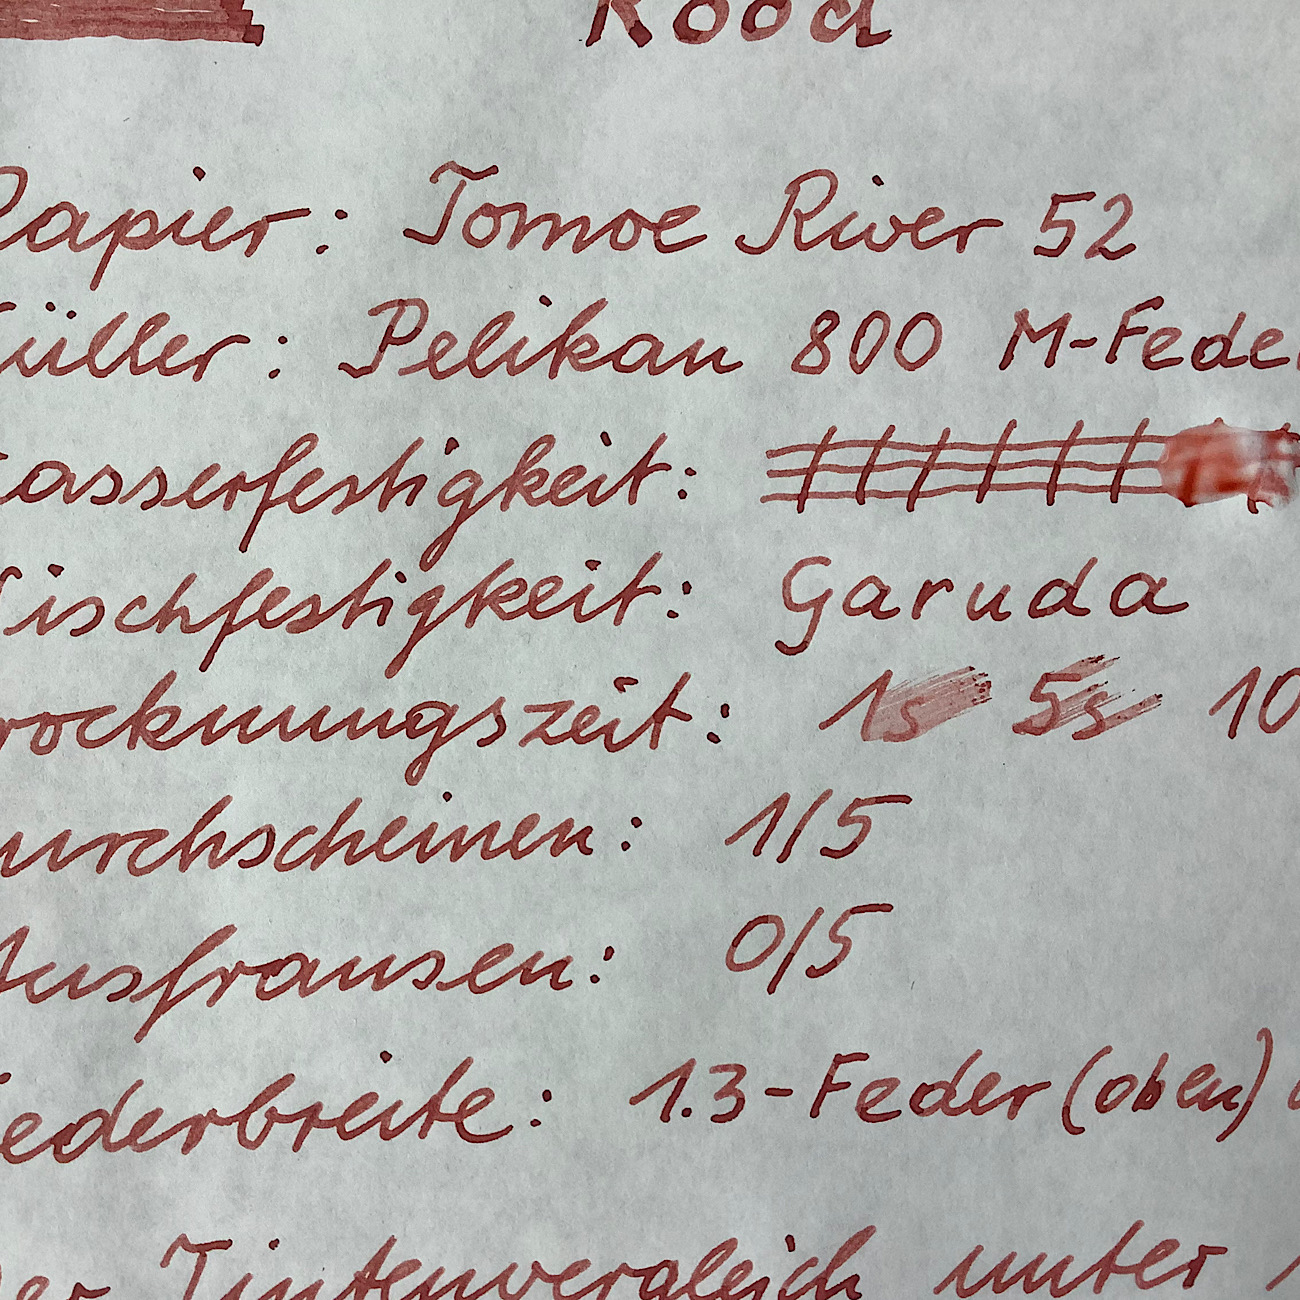 Rood
Papier: Tomoe River 52
Füller: Pelikan 800 M-Feder
Wasserfestigkeit:
Wischfestigkeit: Garuda
Trocknungszeit: 1s 5s 10
Durchscheinen: 1/5
Ausfransen: 0/5
Federbreite: 1.3-Feder (oben)
Der Tintenvergleich unter